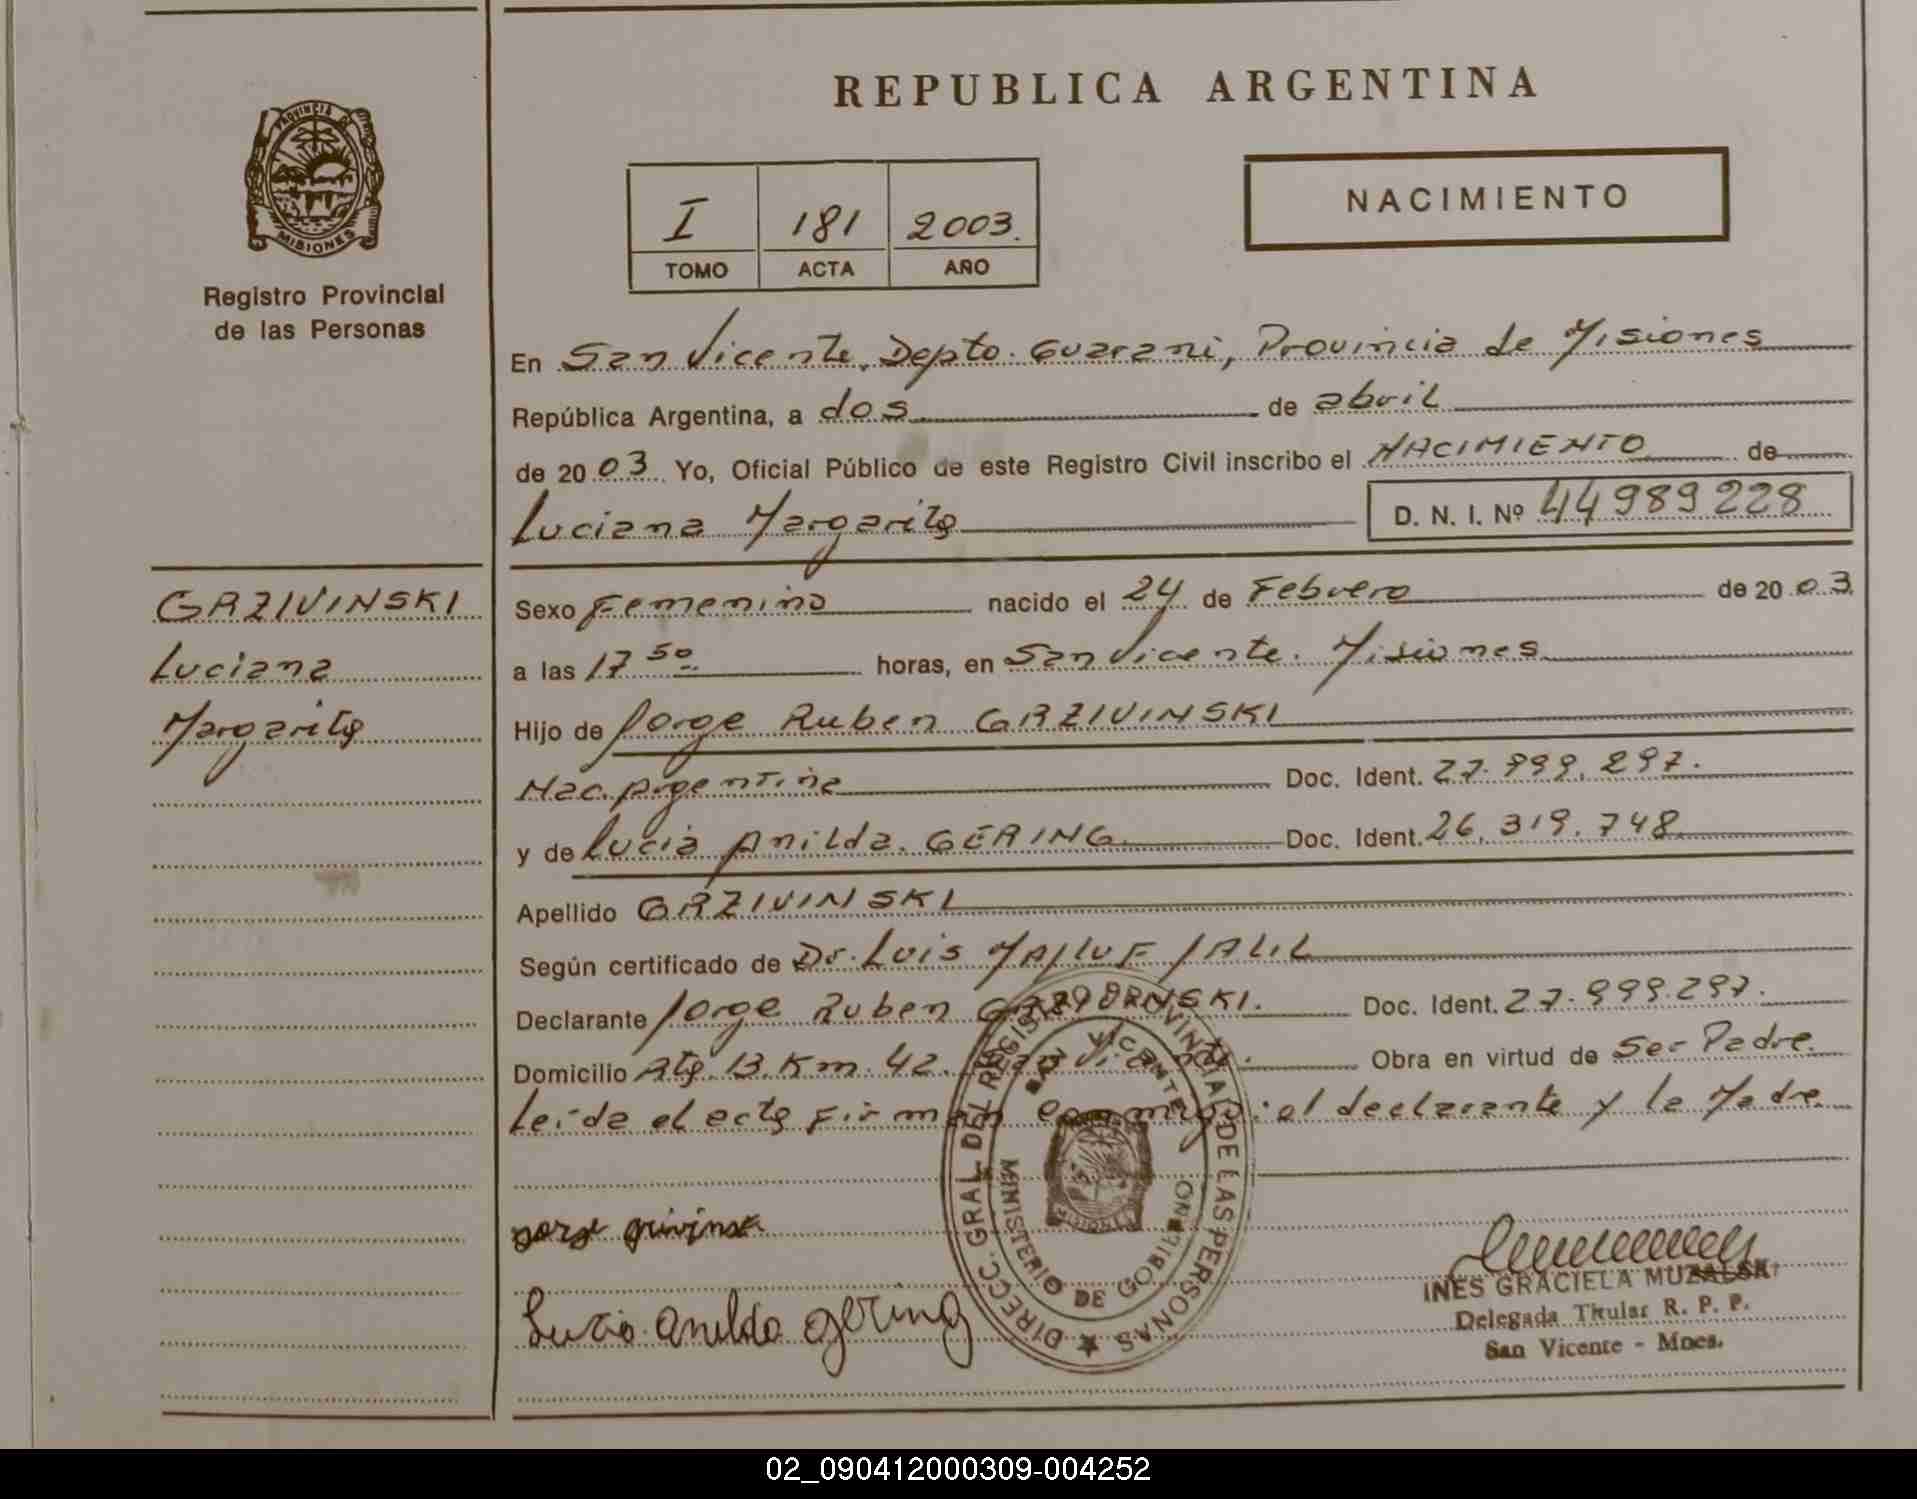 REPUBLICA ARGENTINA
PROVINCIA DE
MISIONES
Registro Provincial
de las Personas
I 181 2003.
TOMO ACTA AÑO
NACIMIENTO
En San Vicente, Depto. Guarani, Provincia de Misiones
República Argentina, a dos de abril
de 2003 Yo, Oficial Público de este Registro Civil inscribo el NACIMIENTO de
Luciana Margarita D. N. I. Nº 44989228
GRZIVINSKI
Luciana
Margarita
Sexo Femenino nacido el 24 de Febrero de 2003
a las 17 50 horas, en San Vicente. Misiones
Hijo de Jorge Ruben GRZIVINSKI
Nac. Argentina Doc. Ident. 27.999.297.
y de Lucia Anilda GERING Doc. Ident. 26.319.748
Apellido GRZIVINSKI
Según certificado de Dr. Luis MAJLUF JALIL
Declarante Jorge Ruben GRZIVINSKI. Doc. Ident. 27.999.297.
Domicilio Rta. 13. Km. 42. San Vicente. Obra en virtud de Ser Padre
Leída el acta firman conmigo: el declarante y la Madre
DIRECC. GRAL DEL REGISTRO PROVINCIAL DE LAS PERSONAS
SAN VICENTE
MINISTERIO DE GOBIERNO
Lucia anilda gering
INES GRACIELA MUZALSKI
Delegada Titular R. P. P.
San Vicente - Mnes.
02_090412000309-004252